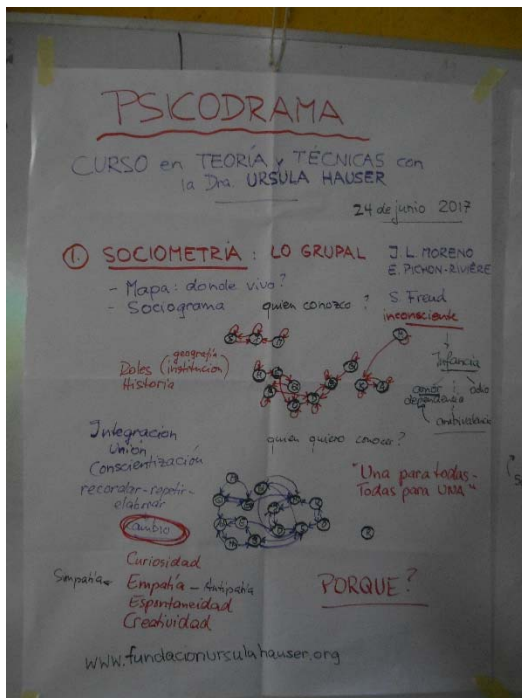 PSICODRAMA
CURSO en TEORÍA y TÉCNICAS con
la Dra. URSULA HAUSER
24 de junio 2017
1. SOCIOMETRÍA: LO GRUPAL
J. L. MORENO
E. PICHON-RIVIÈRE
- Mapa: donde vivo?
- Sociograma quien conozco?
S. Freud
inconsciente
Roles (geografía institución)
Historia
Infancia
amor : odio
dependencia
ambivalencia
Integración
Unión
Conscientización
recordar-repetir-
elaborar
Cambio
quien quiero conocer?
"Una para todas-
Todas para UNA"
Curiosidad
Simpatía - Empatía - Antipatía
Espontaneidad
Creatividad
PORQUE?
www.fundacionursulahauser.org